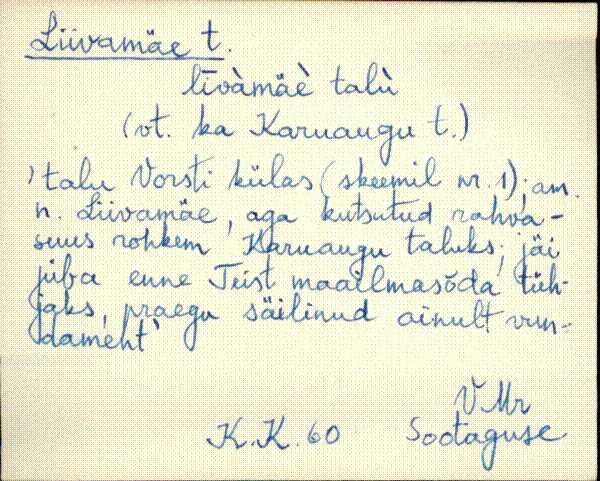 Liivamäe t.
līvàmäè talù
(vt. ka Karuaugu t.)
'talu Vorsti külas (skeemil nr. 1); am.
n. Liivamäe, aga kutsutud rahva-
suus rohkem Karuaugu taluks; jäi
juba enne Teist maailmasõda tüh-
jaks, praegu säilinud ainult vun-
dament'
V.Mr
K.K. 60 Sootaguse